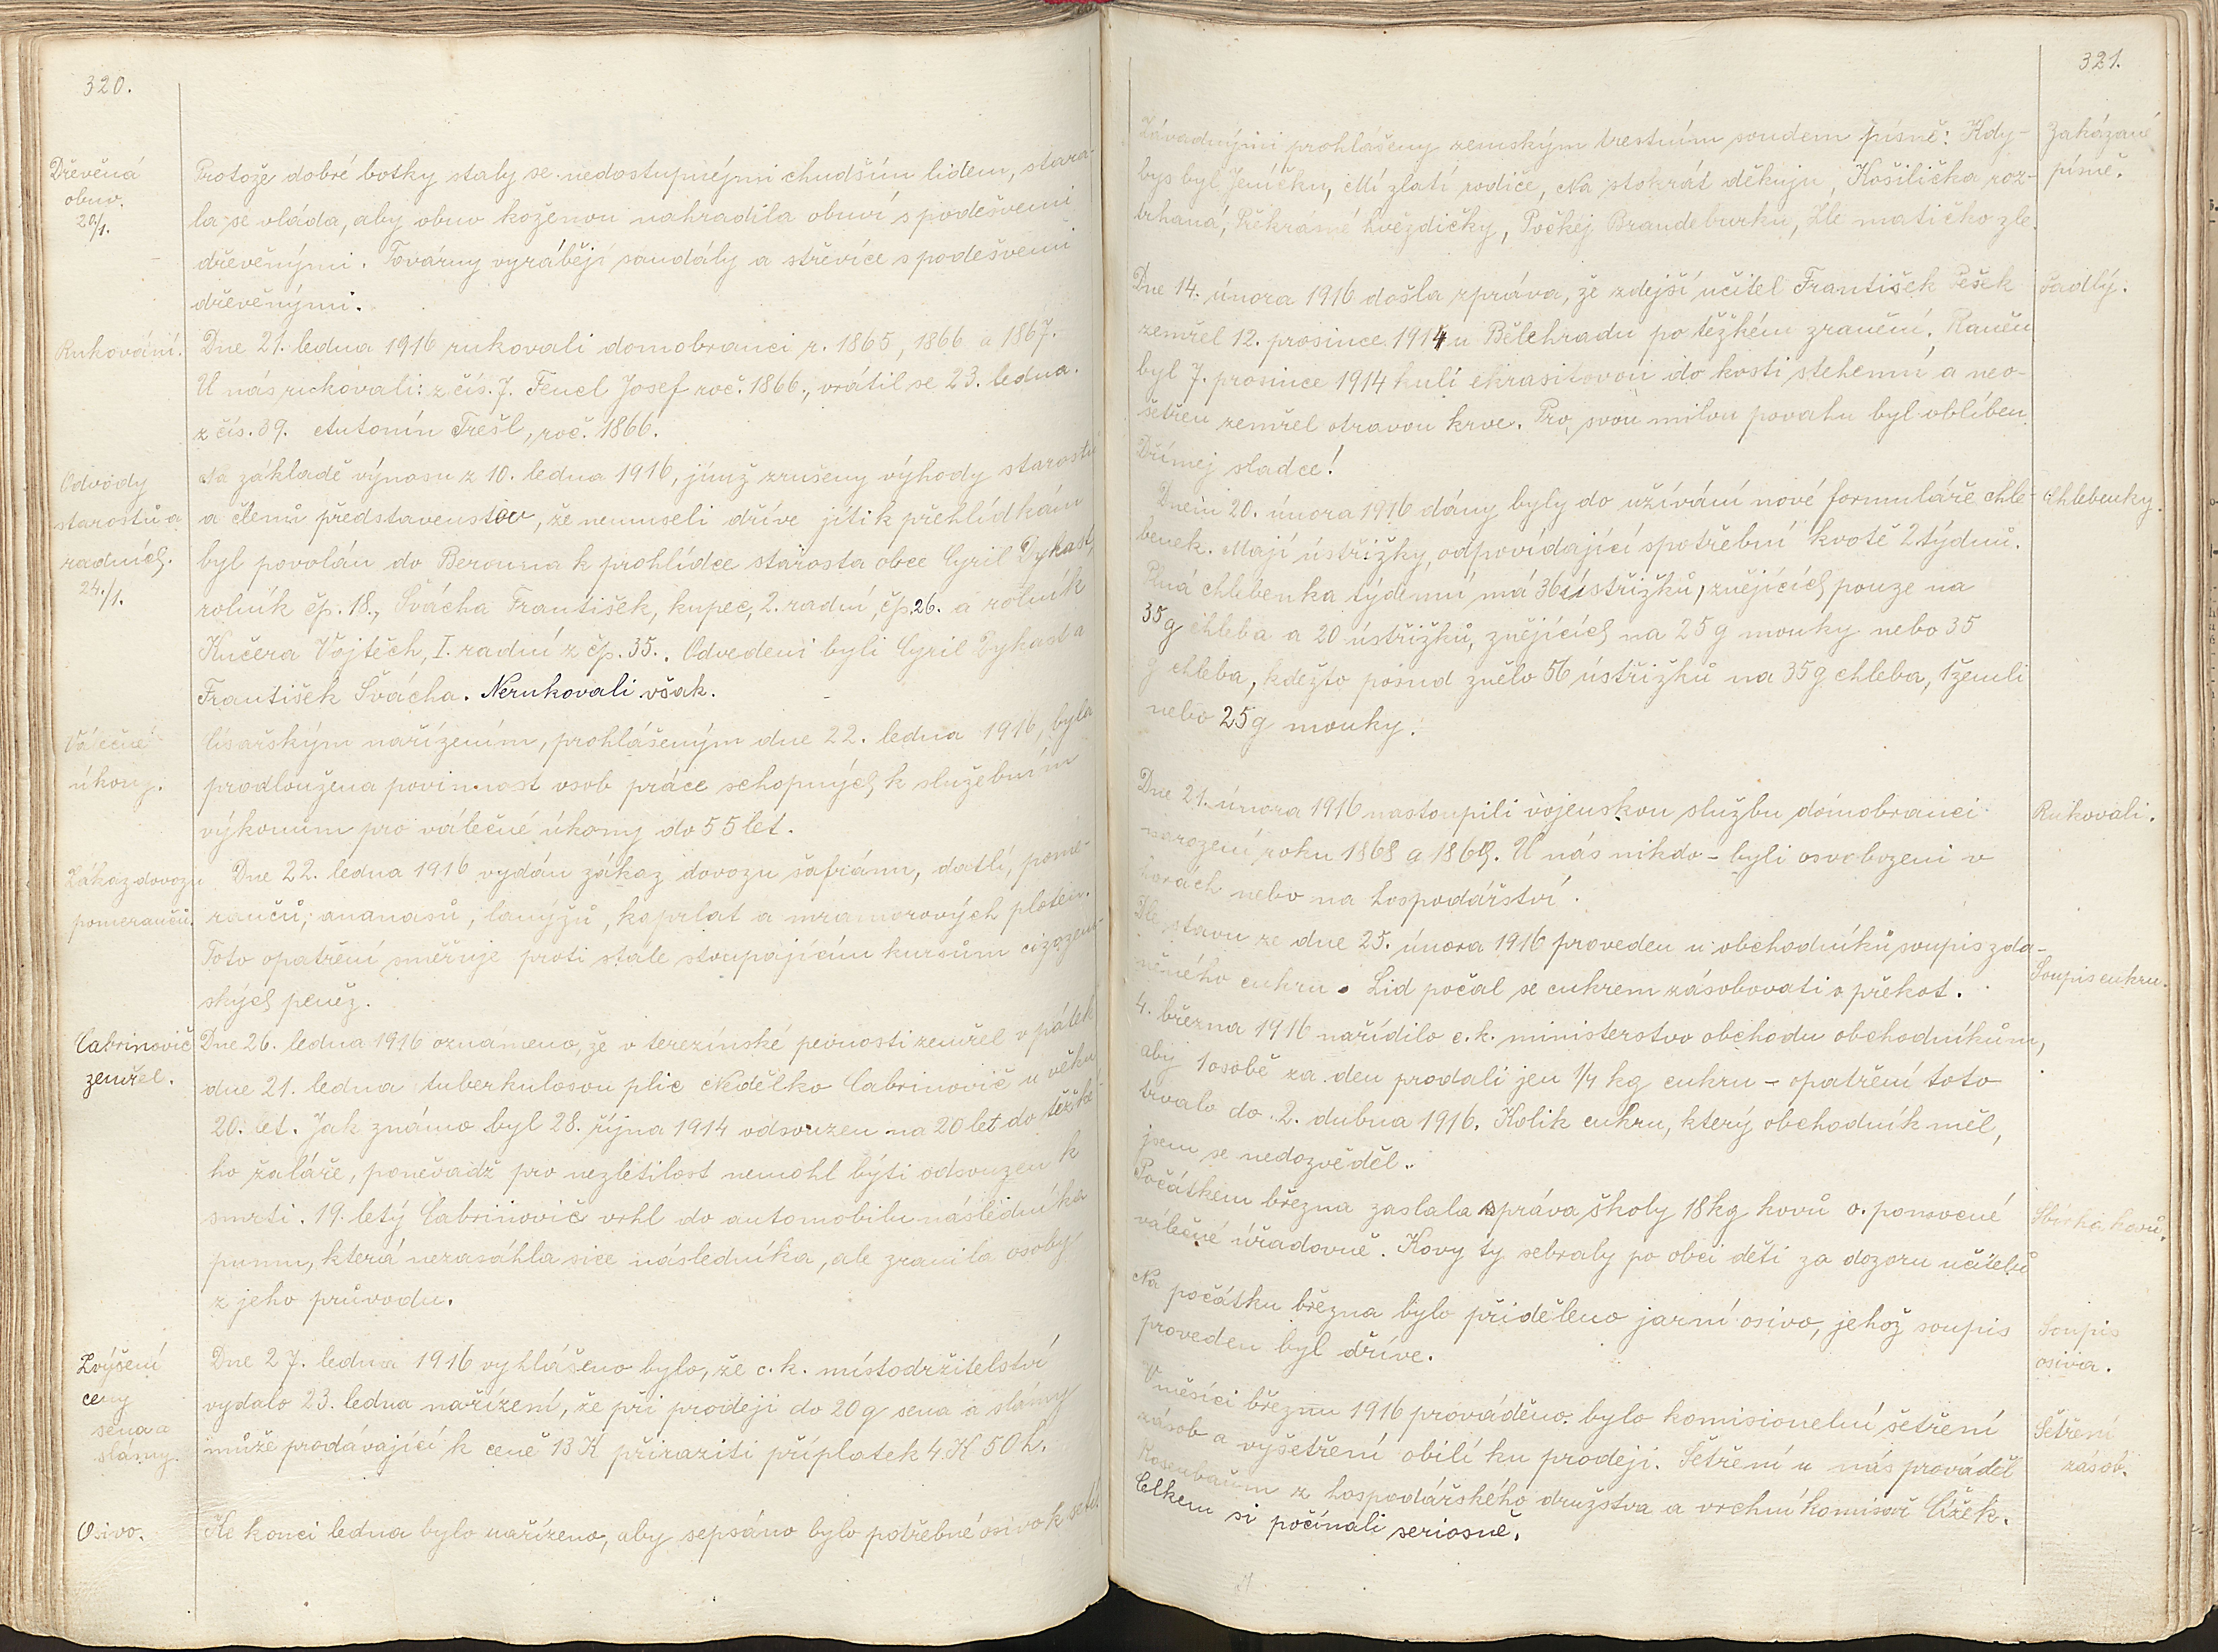 320.
Dřevěná
obuv.
20/1.
Protože dobré botky staly se nedostupnými chudším lidem, stara-
la se vláda, aby obuv koženou nahradila obuví s podešvemi
dřevěnými. Továrny vyrábějí sandály a střevíce s podešvemi
dřevěnými.
Rukování.
Dne 21. ledna 1916 rukovali domobranci r. 1865, 1866 a 1867.
U nás rukovali: z čís. 7. Fencl Josef roč. 1866., vrátil se 23. ledna.
z čís. 39. Antonín Trešl, roč. 1866.
Odvody
starostů a
radních.
24./1.
Na základě výnosu z 10. ledna 1916, jímž zrušeny výhody starostů
a členů představenstev, že nemuseli dříve jíti k přehlídkám
byl povolán do Berouna k prohlídce starosta obce Cyril Dykast,
rolník čp. 18., Švácha František, kupec, 2. radní, čp. 26. a rolník
Kučera Vojtěch, I. radní z čp. 35.. Odvedeni byli Cyril Dykast a
František Švácha. Nerukovali však.
Válečné
úkony.
Císařským nařízením, prohlášeným dne 22. ledna 1916, byla
prodloužena povinnost osob práce schopných k služebním
výkonům pro válečné úkony do 55 let.
Zákaz dovozu
pomerančů.
Dne 22. ledna 1916 vydán zákaz dovozu šafránu, datlí, pome-
rančů, ananasů, lanýžů, kaprlat a mramorových ploten.
Toto opatření směřuje proti stále stoupajícím kursům cizozem-
ských peněz.
Čabrinovič
zemřel.
Dne 26. ledna 1916 oznámeno, že v terezínské pevnosti zemřel v pátek
dne 21. ledna tuberkulosou plic Nedělko Čabrinovič u věku
20. let. Jak známo byl 28. října 1914 odsouzen na 20 let do těžké-
ho žaláře, poněvadž pro nezletilost nemohl býti odsouzen k
smrti. 19. letý Čabrinovič vrhl do automobilu následníka
pumu, která nezasáhla sice následníka, ale zranila osoby
z jeho průvodu.
Zvýšení
ceny
sena a
slámy.
Dne 27. ledna 1916 vyhlášeno bylo, že c. k. místodržitelství
vydalo 23. ledna nařízení, že při prodeji do 20 q sena a slámy
může prodávající k ceně 13 K přiraziti příplatek 4 K 50 h.
Osivo.
Ke konci ledna bylo nařízeno, aby sepsáno bylo potřebné osivo k setí.
321.
Zakázané
písně.
Závadnými prohlášeny zemským trestním soudem písně: Kdy-
bys byl Jeníčku, Mí zlatí rodiče, Na stokrát děkuju, Košilička roz-
trhaná, Překrásné hvězdičky, Počkej Brandeburku, Zle matičko zle.
Padlý.
Dne 14. února 1916 došla zpráva, že zdejší učitel František Pešek
zemřel 12. prosince 1914 u Bělehradu po těžkém zranění. Raněn
byl 7. prosince 1914 kulí ekrasitovou do kosti stehenní a neo-
šetřen zemřel otravou krve. Pro svou milou povahu byl oblíben.
Dřímej sladce!
Chlebenky.
Dnem 20. února 1916 dány byly do užívání nové formuláře chle-
benek. Mají ústřižky, odpovídající spotřební kvotě 2 týdnů.
Plná chlebenka týdenní má 36 ústřižků, znějících pouze na
35 g chleba a 20 ústřižků, znějících na 25 g mouky nebo 35
g chleba, kdežto posud znělo 56 ústřižků na 35 g chleba, 1 žemli
nebo 25 g mouky.
Rukovali.
Dne 21. února 1916 nastoupili vojenskou službu domobranci
narození roku 1868 a 1869. U nás nikdo - byli osvobozeni v
horách nebo na hospodářství.
Soupis cukru.
Dle stavu ze dne 25. února 1916 proveden u obchodníků soupis zda-
něného cukru. Lid počal se cukrem zásobovati o překot.
4. března 1916 nařídilo c. k. ministerstvo obchodu obchodníkům,
aby 1 osobě za den prodali jen 1/4 kg cukru - opatření toto
trvalo do 2. dubna 1916. Kolik cukru, který obchodník měl,
jsem se nedozvěděl.
Sbírka kovů.
Počátkem března zaslala správa školy 18 kg kovů o. pomocné
válečné úřadovně. Kovy ty sebraly po obci děti za dozoru učitelů
Soupis
osiva.
Na počátku března bylo přiděleno jarní osivo, jehož soupis
proveden byl dříve.
Šetření
zásob.
V měsíci březnu 1916 prováděno bylo komisionelní šetření
zásob a vyšetření obilí ku prodeji. Šetření u nás prováděl
Rosenbaum z hospodářského družstva a vrchní komisař Čížek.
Celkem si počínali seriosně.
21